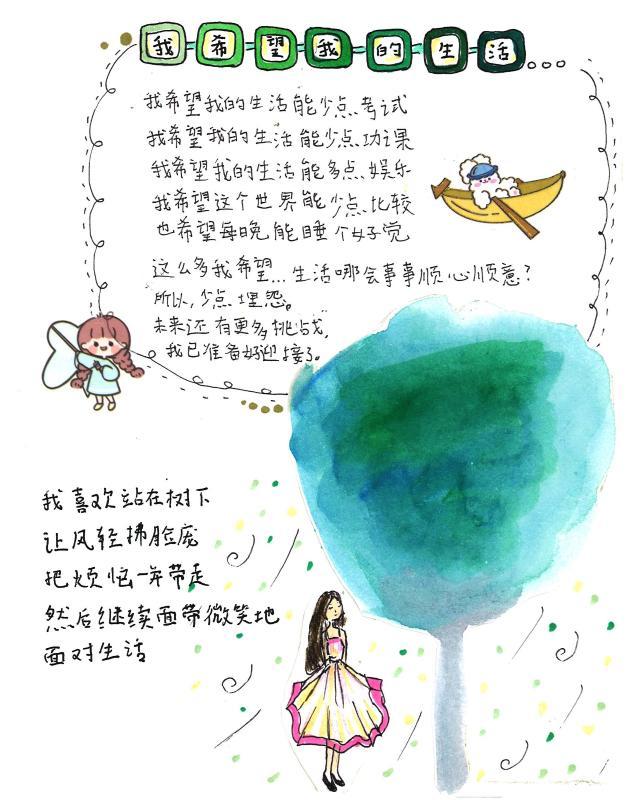 我希望我的生活
我希望我的生活能少点考试
我希望我的生活能少点功课
我希望我的生活能多点娱乐
我希望这个世界能少点比较
也希望每晚能睡个好觉
这么多我希望...生活哪会事事顺心顺意?
所以,少点埋怨。
未来还有更多挑战,
我已准备好迎接了。
我喜欢站在树下
让风轻拂脸庞
把烦恼一并带走
然后继续面带微笑地
面对生活